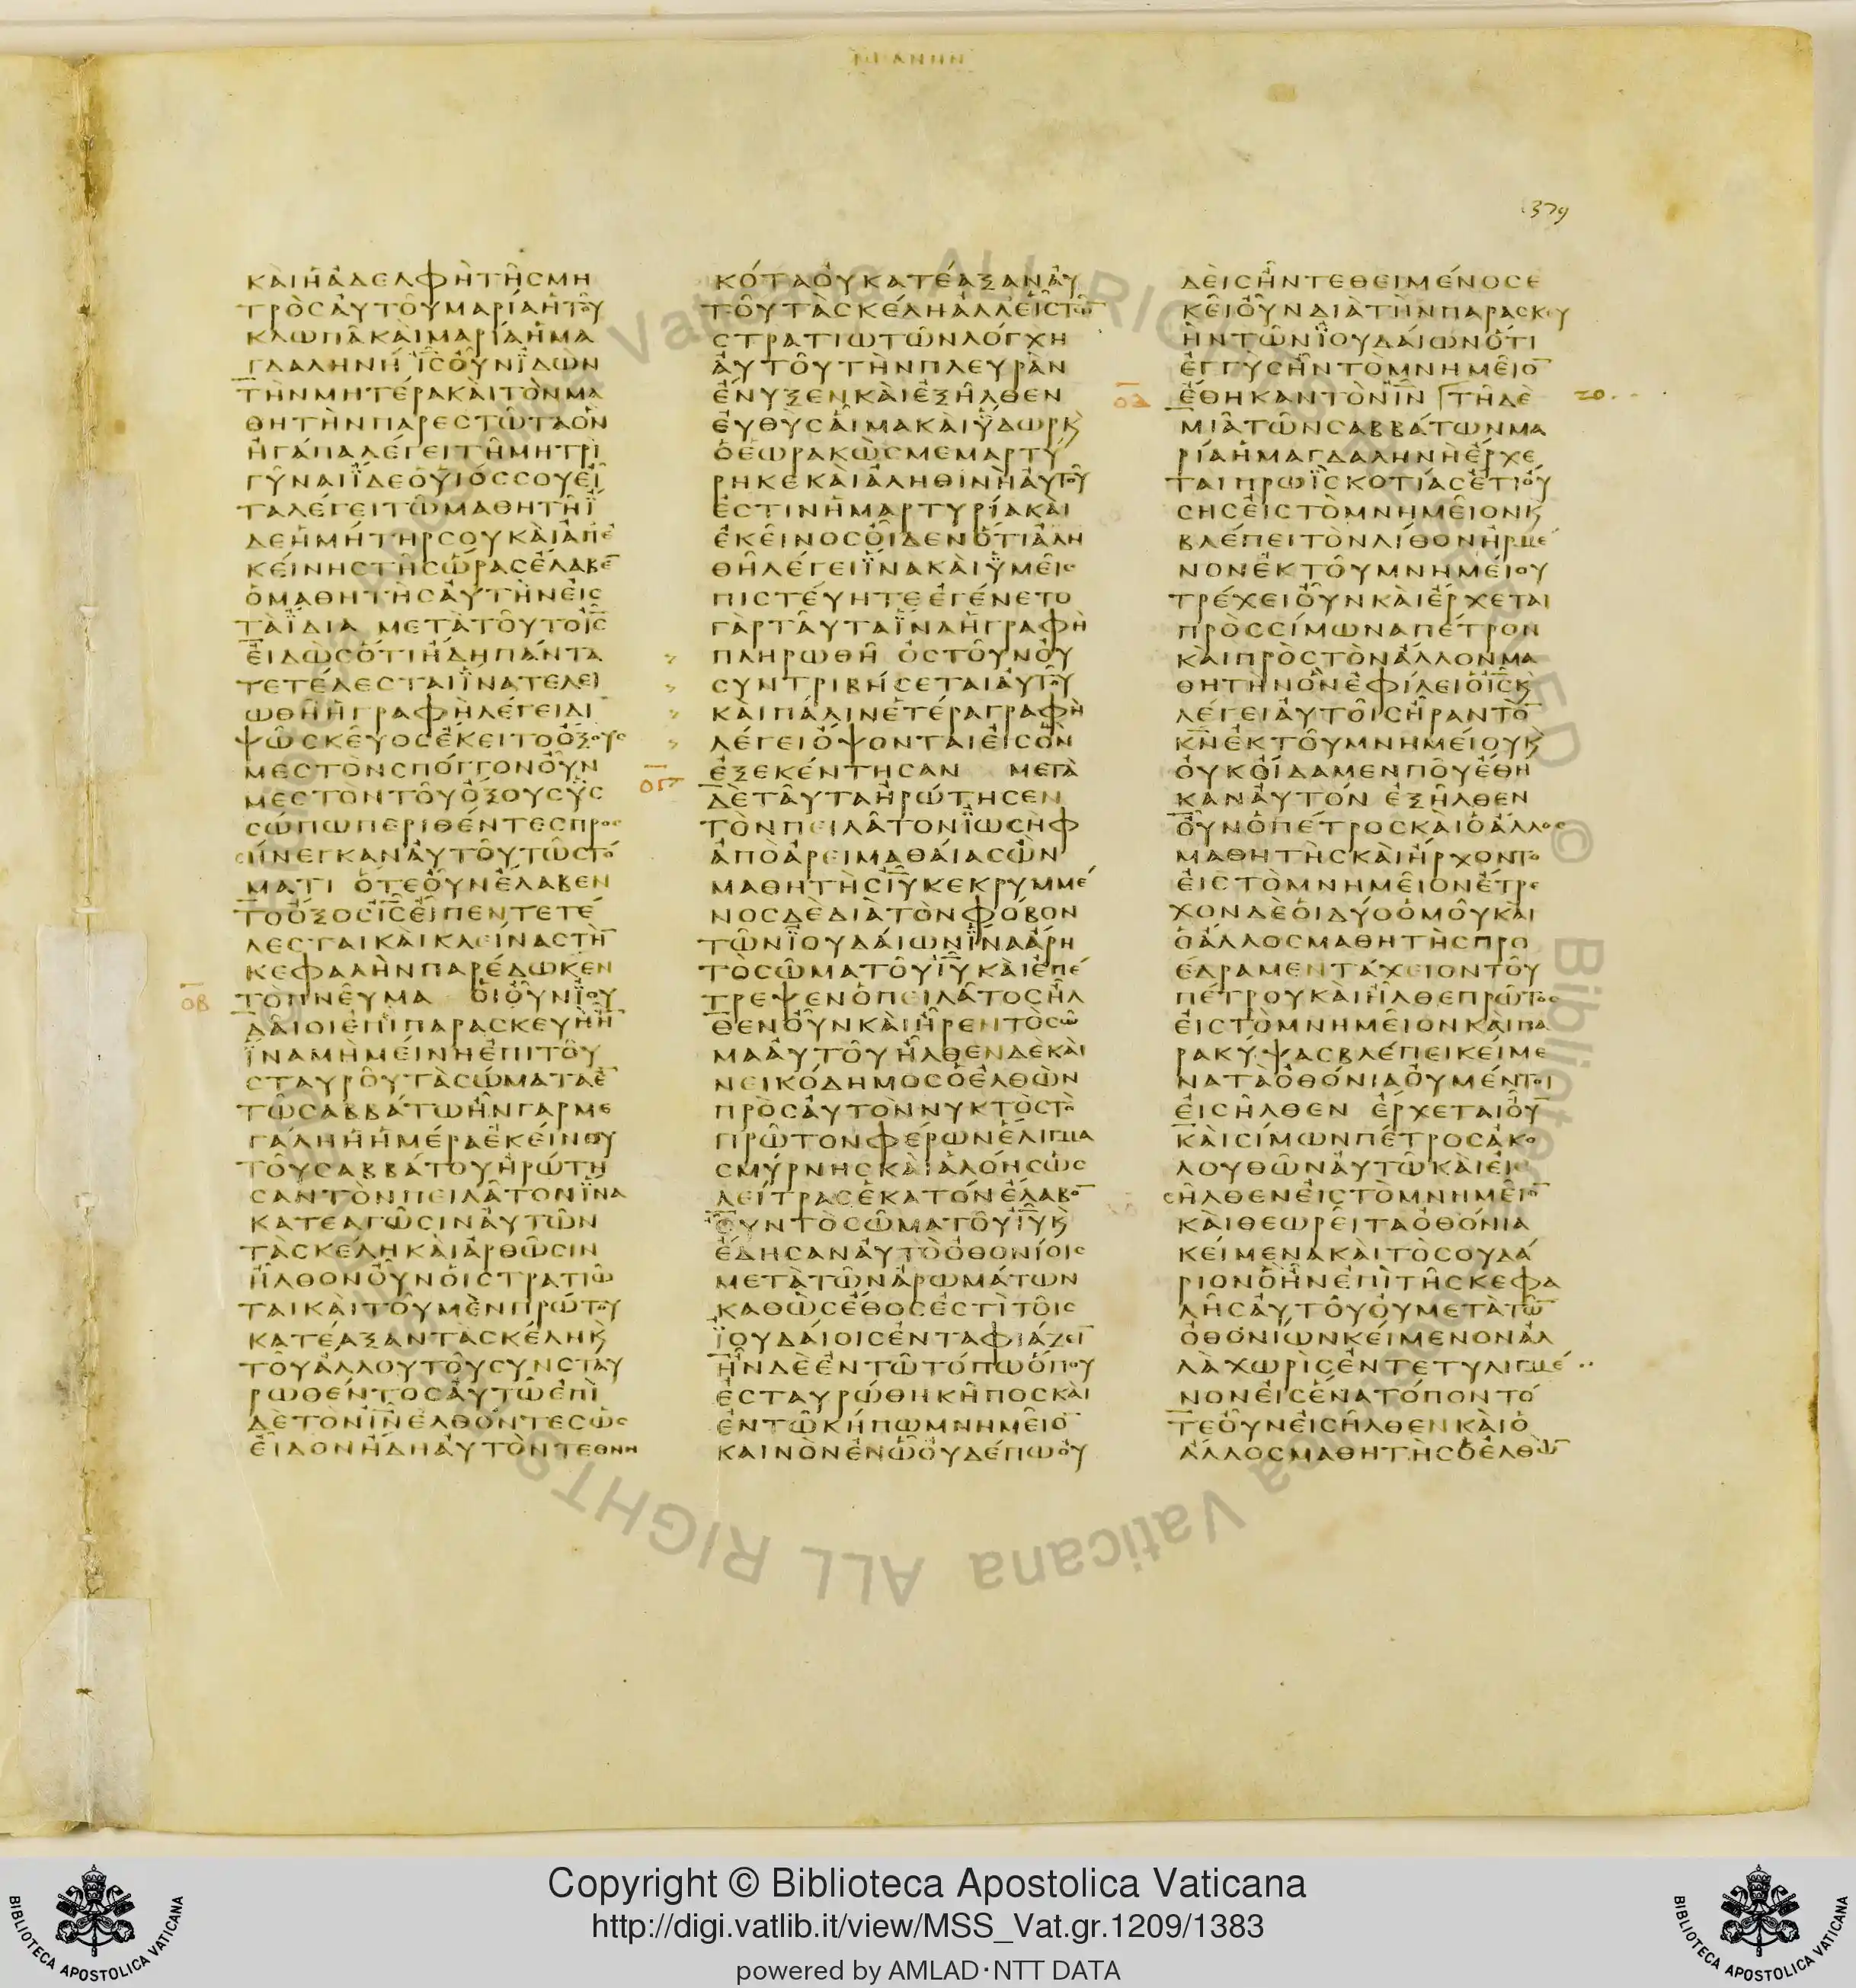 ΙΩΑΝΗΝ
1379
ΚΑΙΗΑΔΕΛΦΗΤΗΣΜΗ
ΤΡΟΣΑΥΤΟΥΜΑΡΙΑΗΤΟΥ
ΚΛΩΠΑΚΑΙΜΑΡΙΑΗΜΑ
ΓΔΑΛΗΝΗ ΙΣΟΥΝΪΔΩΝ
ΤΗΝΜΗΤΕΡΑΚΑΙΤΟΝΜΑ
ΘΗΤΗΝΠΑΡΕΣΤΩΤΑΟΝ
ΗΓΑΠΑΛΕΓΕΙΤΗΜΗΤΡΙ
ΓΥΝΑΙΪΔΕΟΫΙΟΣΣΟΥΕΙ
ΤΑΛΕΓΕΙΤΩΜΑΘΗΤΗΪ
ΔΕΗΜΗΤΗΡΣΟΥΚΑΙΑΠΕ
ΚΕΙΝΗΣΤΗΣΩΡΑΣΕΛΑΒΕ
ΟΜΑΘΗΤΗΣΑΥΤΗΝΕΙΣ
ΤΑΪΔΙΑ ΜΕΤΑΤΟΥΤΟΙΣ
ΕΙΔΩΣΟΤΙΗΔΗΠΑΝΤΑ
ΤΕΤΕΛΕΣΤΑΙΪΝΑΤΕΛΕΙ
ΩΘΗΗΓΡΑΦΗΛΕΓΕΙΔΙ
ΨΩΣΚΕΥΟΣΕΚΕΙΤΟΟΞΟΥΣ
ΜΕΣΤΟΝΣΠΟΓΓΟΝΟΥΝ
ΜΕΣΤΟΝΤΟΥΟΞΟΥΣΥΣ
ΣΩΠΩΠΕΡΙΘΕΝΤΕΣΠΡΟΣ
ΗΝΕΓΚΑΝΑΥΤΟΥΤΩΣΤΟ
ΜΑΤΙ ΟΤΕΟΥΝΕΛΑΒΕΝ
ΤΟΟΞΟΣΙΣΕΙΠΕΝΤΕΤΕ
ΛΕΣΤΑΙΚΑΙΚΛΕΙΝΑΣΤΗ
ΚΕΦΑΛΗΝΠΑΡΕΔΩΚΕΝ
ΟΒ ΤΟΠΝΕΥΜΑ ΟΙΟΥΝΪΟΥ
ΔΑΙΟΙΕΠΙΠΑΡΑΣΚΕΥΗΗ
ΪΝΑΜΗΜΕΙΝΗΕΠΙΤΟΥ
ΣΤΑΥΡΟΥΤΑΣΩΜΑΤΑΕ
ΤΩΣΑΒΒΑΤΩΗΝΓΑΡΜΕ
ΓΑΛΗΗΗΜΕΡΑΕΚΕΙΝΟΥ
ΤΟΥΣΑΒΒΑΤΟΥΗΡΩΤΗ
ΣΑΝΤΟΝΠΕΙΛΑΤΟΝΪΝΑ
ΚΑΤΕΑΓΩΣΙΝΑΥΤΩΝ
ΤΑΣΚΕΛΗΚΑΙΑΡΘΩΣΙΝ
ΗΛΘΟΝΟΥΝΟΙΣΤΡΑΤΙΩ
ΤΑΙΚΑΙΤΟΥΜΕΝΠΡΩΤΟΥ
ΚΑΤΕΑΞΑΝΤΑΣΚΕΛΗΚ
ΤΟΥΑΛΛΟΥΤΟΥΣΥΝΣΤΑΥ
ΡΩΘΕΝΤΟΣΑΥΤΩΕΠΙ
ΔΕΤΟΝΙΝΕΛΘΟΝΤΕΣΩΣ
ΕΙΔΟΝΗΔΗΑΥΤΟΝΤΕΘΝΗ
ΚΟΤΑΟΥΚΑΤΕΑΞΑΝΑΥ
ΤΟΥΤΑΣΚΕΛΗΑΛΛΕΙΣΤΩ
ΣΤΡΑΤΙΩΤΩΝΛΟΓΧΗ
ΑΥΤΟΥΤΗΝΠΛΕΥΡΑΝ
ΕΝΥΞΕΝΚΑΙΕΞΗΛΘΕΝ
ΕΥΘΥΣΑΙΜΑΚΑΙΫΔΩΡΚ
ΟΕΩΡΑΚΩΣΜΕΜΑΡΤΥ
ΡΗΚΕΚΑΙΑΛΗΘΙΝΗΑΥΤΟΥ
ΕΣΤΙΝΗΜΑΡΤΥΡΙΑΚΑΙ
ΕΚΕΙΝΟΣΟΙΔΕΝΟΤΙΑΛΗ
ΘΗΛΕΓΕΙΪΝΑΚΑΙΫΜΕΙΣ
ΠΙΣΤΕΥΗΤΕΕΓΕΝΕΤΟ
ΓΑΡΤΑΥΤΑΪΝΑΗΓΡΑΦΗ
ΠΛΗΡΩΘΗ ΟΣΤΟΥΝΟΥ
ΣΥΝΤΡΙΒΗΣΕΤΑΙΑΥΤΟΥ
ΚΑΙΠΑΛΙΝΕΤΕΡΑΓΡΑΦΗ
ΛΕΓΕΙΟΨΟΝΤΑΙΕΙΣΟΝ
ΕΞΕΚΕΝΤΗΣΑΝ ΜΕΤΑ
ΟΓ ΔΕΤΑΥΤΑΗΡΩΤΗΣΕΝ
ΤΟΝΠΕΙΛΑΤΟΝΪΩΣΗΦ
ΑΠΟΑΡΕΙΜΑΘΑΙΑΣΩΝ
ΜΑΘΗΤΗΣΙΥΚΕΚΡΥΜΜΕ
ΝΟΣΔΕΔΙΑΤΟΝΦΟΒΟΝ
ΤΩΝΪΟΥΔΑΙΩΝΪΝΑΑΡΗ
ΤΟΣΩΜΑΤΟΥΙΥΚΑΙΕΠΕ
ΤΡΕΨΕΝΟΠΕΙΛΑΤΟΣΗΛ
ΘΕΝΟΥΝΚΑΙΗΡΕΝΤΟΣΩ
ΜΑΑΥΤΟΥΗΛΘΕΝΔΕΚΑΙ
ΝΕΙΚΟΔΗΜΟΣΟΕΛΘΩΝ
ΠΡΟΣΑΥΤΟΝΝΥΚΤΟΣΤΟ
ΠΡΩΤΟΝΦΕΡΩΝΕΛΙΓΜΑ
ΣΜΥΡΝΗΣΚΑΙΑΛΟΗΣΩΣ
ΛΕΙΤΡΑΣΕΚΑΤΟΝΕΛΑΒΟ
ΟΥΝΤΟΣΩΜΑΤΟΥΙΥΚ
ΕΔΗΣΑΝΑΥΤΟΟΘΟΝΙΟΙΣ
ΜΕΤΑΤΩΝΑΡΩΜΑΤΩΝ
ΚΑΘΩΣΕΘΟΣΕΣΤΙΤΟΙΣ
ΪΟΥΔΑΙΟΙΣΕΝΤΑΦΙΑΖΕΙ
ΗΝΔΕΕΝΤΩΤΟΠΩΟΠΟΥ
ΕΣΤΑΥΡΩΘΗΚΗΠΟΣΚΑΙ
ΕΝΤΩΚΗΠΩΜΝΗΜΕΙΟ
ΚΑΙΝΟΝΕΝΩΟΥΔΕΠΩΟΥ
ΔΕΙΣΗΝΤΕΘΕΙΜΕΝΟΣΕ
ΚΕΙΟΥΝΔΙΑΤΗΝΠΑΡΑΣΚΕΥ
ΗΝΤΩΝΪΟΥΔΑΙΩΝΟΤΙ
ΕΓΓΥΣΗΝΤΟΜΝΗΜΕΙΟ
ΕΘΗΚΑΝΤΟΝΙΝ ΤΗΔΕ 20
ΜΙΑΤΩΝΣΑΒΒΑΤΩΝΜΑ
ΡΙΑΗΜΑΓΔΑΛΗΝΗΕΡΧΕ
ΤΑΙΠΡΩΪΣΚΟΤΙΑΣΕΤΙΟΥ
ΣΗΣΕΙΣΤΟΜΝΗΜΕΙΟΝΚ
ΒΛΕΠΕΙΤΟΝΛΙΘΟΝΗΡΜΕ
ΝΟΝΕΚΤΟΥΜΝΗΜΕΙΟΥ
ΤΡΕΧΕΙΟΥΝΚΑΙΕΡΧΕΤΑΙ
ΠΡΟΣΣΙΜΩΝΑΠΕΤΡΟΝ
ΚΑΙΠΡΟΣΤΟΝΑΛΛΟΝΜΑ
ΘΗΤΗΝΟΝΕΦΙΛΕΙΟΙΣΚ
ΛΕΓΕΙΑΥΤΟΙΣΗΡΑΝΤΟ
ΚΝΕΚΤΟΥΜΝΗΜΕΙΟΥΚ
ΟΥΚΟΙΔΑΜΕΝΠΟΥΕΘΗ
ΚΑΝΑΥΤΟΝ ΕΞΗΛΘΕΝ
ΟΥΝΟΠΕΤΡΟΣΚΑΙΟΑΛΛΟΣ
ΜΑΘΗΤΗΣΚΑΙΗΡΧΟΝΤΟ
ΕΙΣΤΟΜΝΗΜΕΙΟΝΕΤΡΕ
ΧΟΝΔΕΟΙΔΥΟΟΜΟΥΚΑΙ
ΟΑΛΛΟΣΜΑΘΗΤΗΣΠΡΟ
ΕΔΡΑΜΕΝΤΑΧΕΙΟΝΤΟΥ
ΠΕΤΡΟΥΚΑΙΗΛΘΕΠΡΩΤΟΣ
ΕΙΣΤΟΜΝΗΜΕΙΟΝΚΑΙΠΑ
ΡΑΚΥΨΑΣΒΛΕΠΕΙΚΕΙΜΕ
ΝΑΤΑΟΘΟΝΙΑΟΥΜΕΝΤΟΙ
ΕΙΣΗΛΘΕΝ ΕΡΧΕΤΑΙΟΥ
ΚΑΙΣΙΜΩΝΠΕΤΡΟΣΑΚΟ
ΛΟΥΘΩΝΑΥΤΩΚΑΙΕΙ
ΣΗΛΘΕΝΕΙΣΤΟΜΝΗΜΕΙΟ
ΚΑΙΘΕΩΡΕΙΤΑΟΘΟΝΙΑ
ΚΕΙΜΕΝΑΚΑΙΤΟΣΟΥΔΑ
ΡΙΟΝΟΗΝΕΠΙΤΗΣΚΕΦΑ
ΛΗΣΑΥΤΟΥΟΥΜΕΤΑΤΩ
ΟΘΟΝΙΩΝΚΕΙΜΕΝΟΝΑΛ
ΛΑΧΩΡΙΣΕΝΤΕΤΥΛΙΓΜΕ
ΝΟΝΕΙΣΕΝΑΤΟΠΟΝΤΟ
ΤΕΟΥΝΕΙΣΗΛΘΕΝΚΑΙΟ
ΑΛΛΟΣΜΑΘΗΤΗΣΟΕΛΘΩ
Copyright © Biblioteca Apostolica Vaticana
http://digi.vatlib.it/view/MSS_Vat.gr.1209/1383
powered by AMLAD·NTT DATA
BIBLIOTECA APOSTOLICA VATICANA
BIBLIOTECA APOSTOLICA VATICANA